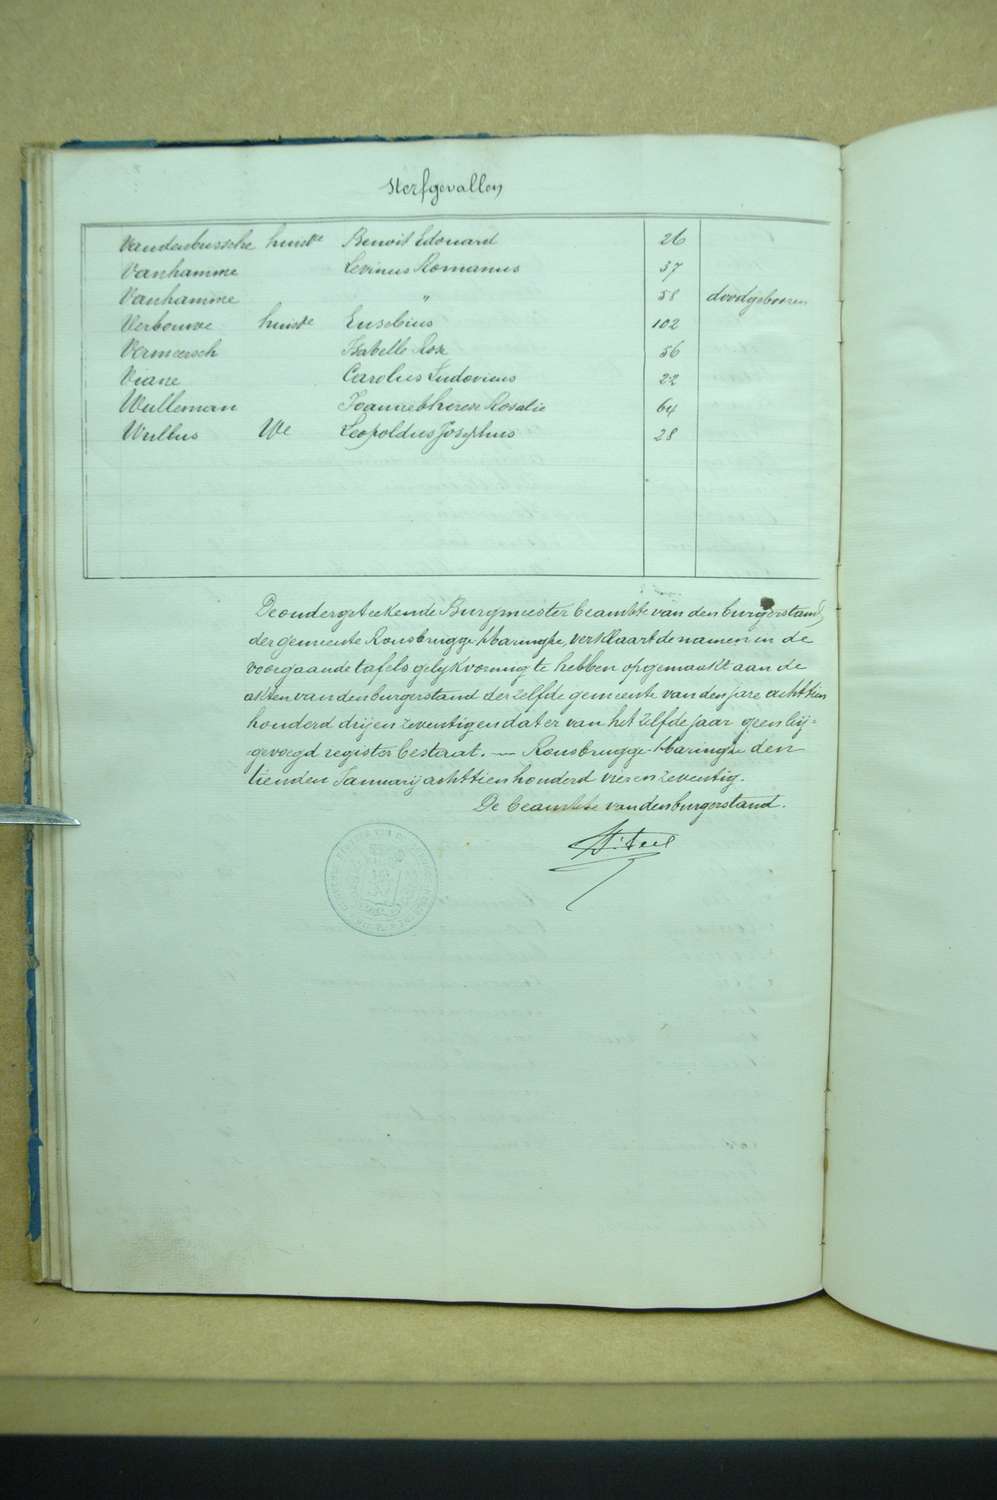 Sterfgevallen
Vandenbussche huisvr Benoit Edouard 26
Vanhamme Levinus Romanus 37
Vanhamme " 58 doodgeboren
Verbouwe huisvr Eusebius 102
Vermeersch Isabelle Rose 56
Viane Carolus Ludovicus 22
Wulleman Joanne Therese Rosalie 64
Wullus We Leopoldus Josephus 28
De ondergeteekende Burgmeester beambte van den burgerstand
der gemeente Rousbrugge Haringhe, verklaart de namen in de
voorgaande tafels gelijkvormig te hebben opgemaakt aan de
akten van den burgerstand derzelfde gemeente van den jare achttien
honderd drij en zeventig en dat er van het zelfde jaar geen bij=
gevoegd register bestaat. — Rousbrugge-Haringhe den
tienden Januarij achttien honderd vier en zeventig.
De beambte van den burgerstand.